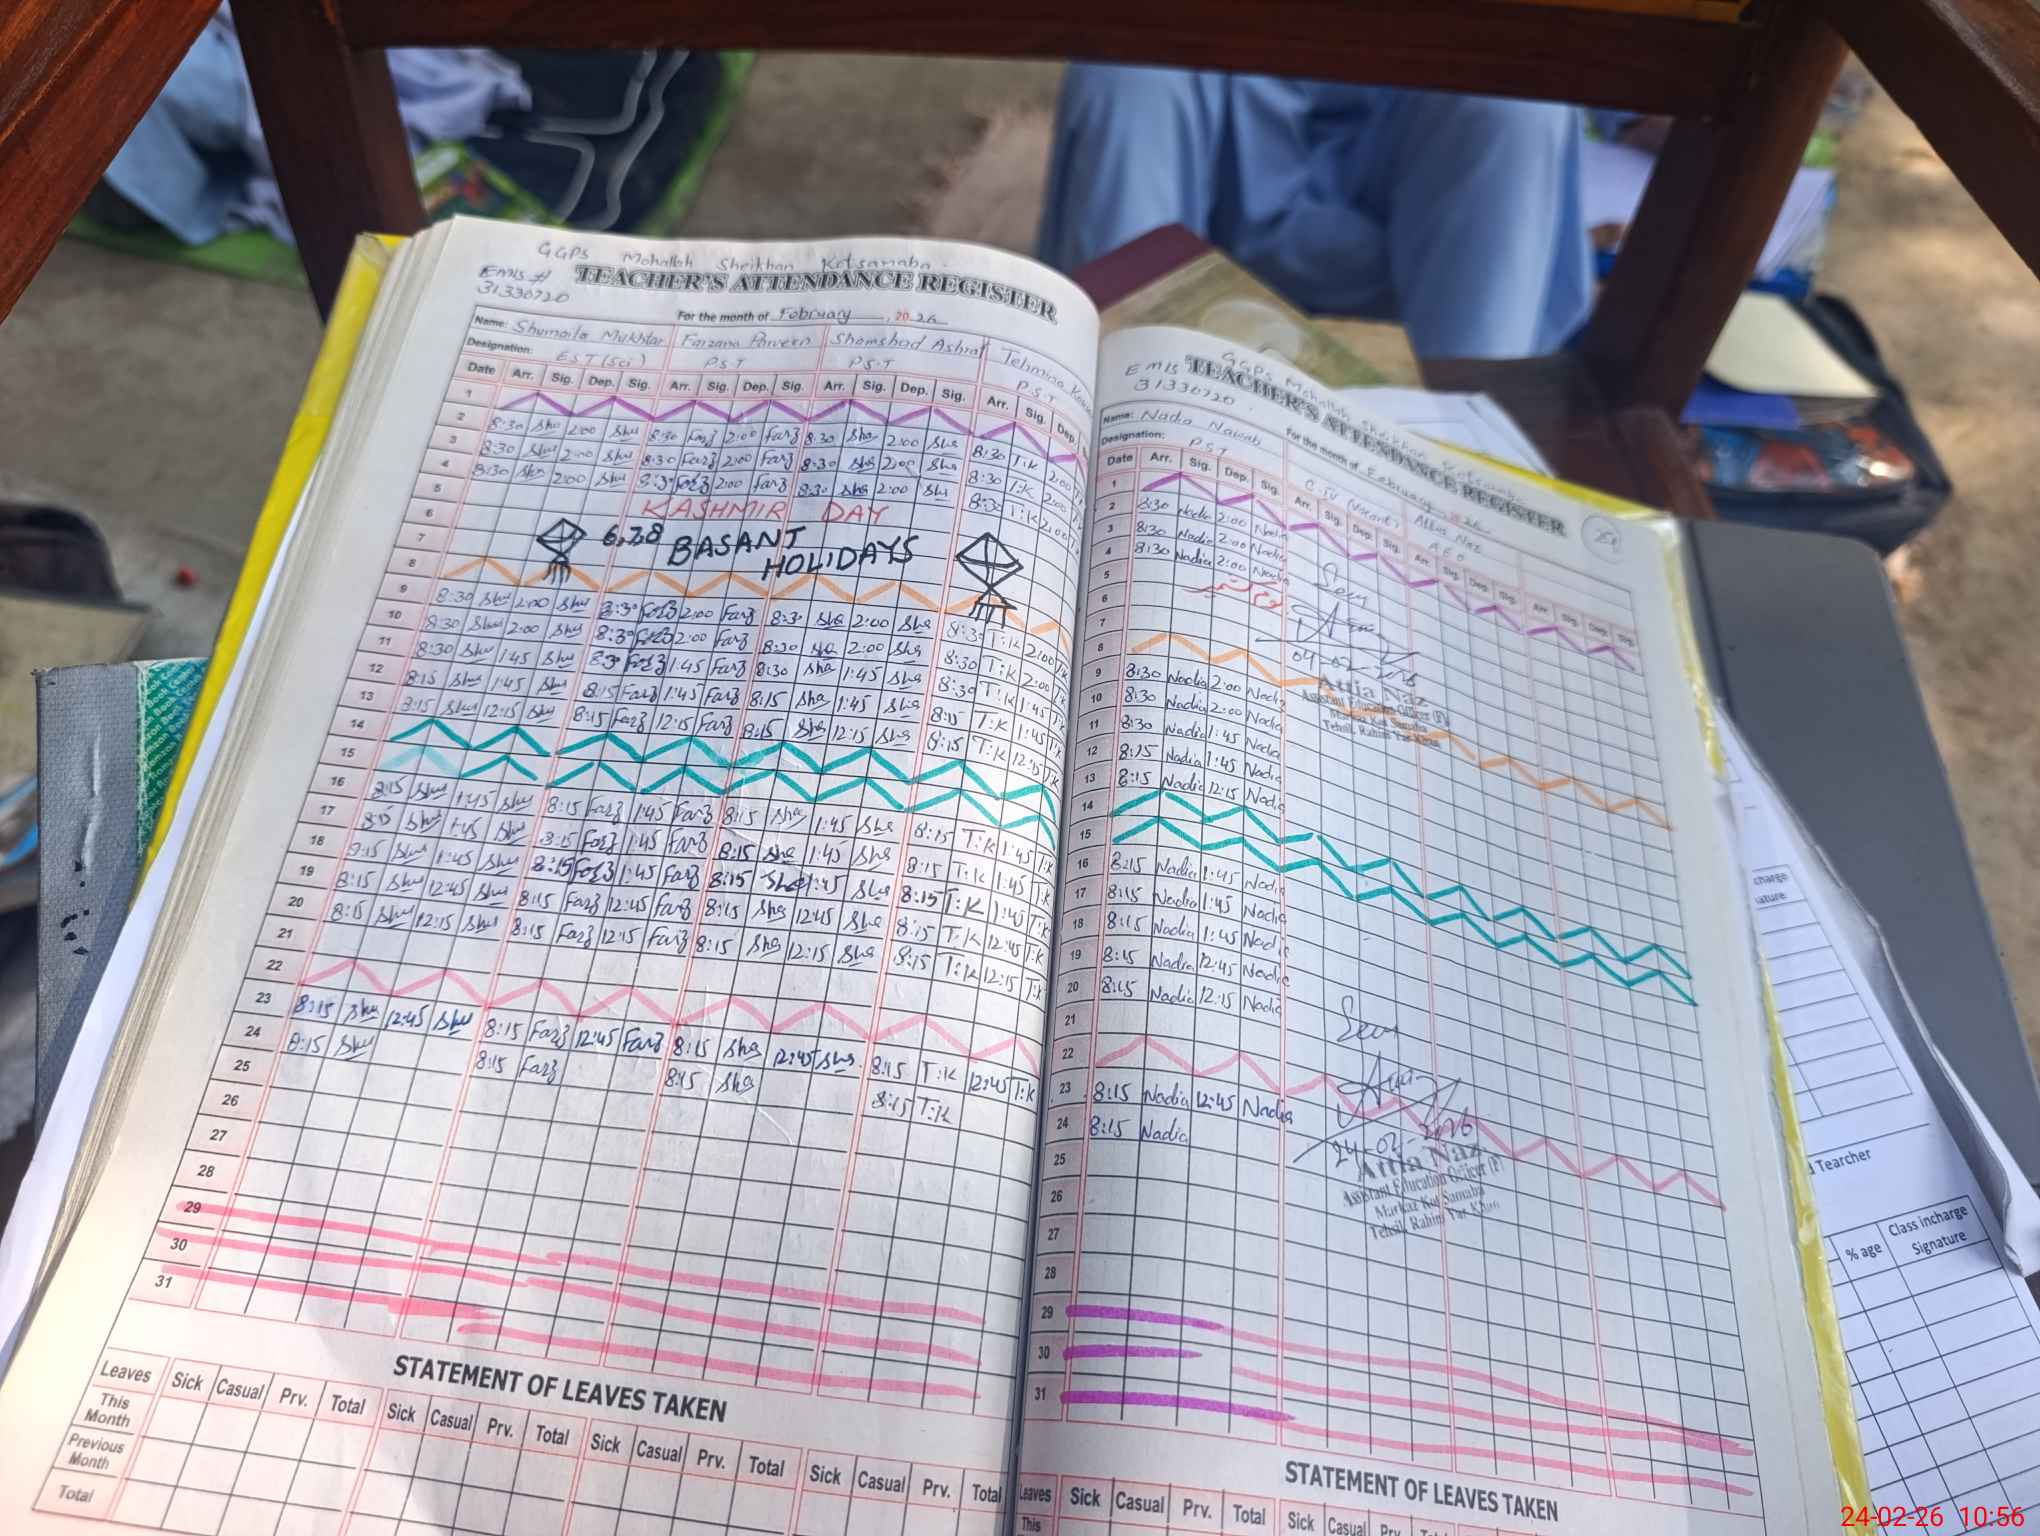 GGPS Mohallah Sheikhan Kotsamaba
EMIS #
31330720
TEACHER'S ATTENDANCE REGISTER
For the month of February, 2026
Name: Shumaila Mukhtar Farzana Parveen Shamshad Ashraf Tehmina
Designation: EST (Sci) P.S.T P.S.T P.S.T
Date Arr. Sig. Dep. Sig. Arr. Sig. Dep. Sig. Arr. Sig. Dep. Sig. Arr. Sig. Dep.
1
2 8:30 Shu 2:00 Shu 8:30 Farz 2:00 Farz 8:30 Sha 2:00 Sha 8:30 T:K 2:00
3 8:30 Shu 2:00 Shu 8:30 Farz 2:00 Farz 8:30 Sha 2:00 Sha 8:30 T:K 2:00
4 8:30 Shu 2:00 Shu 8:30 Farz 2:00 Farz 8:30 Sha 2:00 Sha 8:30 T:K 2:00
5 KASHMIR DAY
6
7 6,7,8 BASANT HOLIDAYS
8
9 8:30 Shu 2:00 Shu 8:30 Farz 2:00 Farz 8:30 Sha 2:00 Sha 8:30 T:K 2:00 T:K
10 8:30 Shu 2:00 Shu 8:30 Farz 2:00 Farz 8:30 Sha 2:00 Sha 8:30 T:K 2:00 T:K
11 8:30 Shu 1:45 Shu 8:30 Farz 1:45 Farz 8:30 Sha 1:45 Sha 8:30 T:K 1:45 T:K
12 8:15 Shu 1:45 Shu 8:15 Farz 1:45 Farz 8:15 Sha 1:45 Sha 8:15 T:K 1:45 T:K
13 8:15 Shu 12:15 Shu 8:15 Farz 12:15 Farz 8:15 Sha 12:15 Sha 8:15 T:K 12:15 T:K
14
15
16 8:15 Shu 1:45 Shu 8:15 Farz 1:45 Farz 8:15 Sha 1:45 Sha 8:15 T:K 1:45 T:K
17 8:15 Shu 1:45 Shu 8:15 Farz 1:45 Farz 8:15 Sha 1:45 Sha 8:15 T:K 1:45 T:K
18 8:15 Shu 1:45 Shu 8:15 Farz 1:45 Farz 8:15 Sha 1:45 Sha 8:15 T:K 1:45 T:K
19 8:15 Shu 12:45 Shu 8:15 Farz 12:45 Farz 8:15 Sha 12:45 Sha 8:15 T:K 12:45 T:K
20 8:15 Shu 12:15 Shu 8:15 Farz 12:15 Farz 8:15 Sha 12:15 Sha 8:15 T:K 12:15 T:K
21
22
23 8:15 Shu 12:45 Shu 8:15 Farz 12:45 Farz 8:15 Sha 12:45 Sha 8:15 T:K 12:45 T:K
24 8:15 Shu 8:15 Farz 8:15 Sha 8:15 T:K
25
26
27
28
29
30
31
STATEMENT OF LEAVES TAKEN
Leaves Sick Casual Prv. Total Sick Casual Prv. Total Sick Casual Prv. Total Sick Casual Prv. Total
This Month
Previous Month
Total
GGPS Mohallah Sheikhan Kotsamaba
EMIS
31330720
TEACHER'S ATTENDANCE REGISTER
For the month of February 2026
Name: Nadia Nawab C-IV (Vacant) Attia Naz
Designation: PST A E O
Date Arr. Sig. Dep. Sig. Arr. Sig. Dep. Sig. Arr. Sig. Dep. Sig. Arr. Sig. Dep. Sig.
1
2 8:30 Nadia 2:00 Nadia
3 8:30 Nadia 2:00 Nadia
4 8:30 Nadia 2:00 Nadia
5 یوم کشمیر
6
7
8
Seen
04-02-2026
Attia Naz
Assistant Education Officer (F)
Markaz Kot Samaba
Tehsil Rahim Yar Khan
9 8:30 Nadia 2:00 Nadia
10 8:30 Nadia 2:00 Nadia
11 8:30 Nadia 1:45 Nadia
12 8:15 Nadia 1:45 Nadia
13 8:15 Nadia 12:15 Nadia
14
15
16 8:15 Nadia 1:45 Nadia
17 8:15 Nadia 1:45 Nadia
18 8:15 Nadia 1:45 Nadia
19 8:15 Nadia 12:45 Nadia
20 8:15 Nadia 12:15 Nadia
21
22
23 8:15 Nadia 12:45 Nadia
24 8:15 Nadia
Seen
24-02-2026
Attia Naz
Assistant Education Officer (F)
Markaz Kot Samaba
Tehsil Rahim Yar Khan
25
26
27
28
29
30
31
STATEMENT OF LEAVES TAKEN
Leaves Sick Casual Prv. Total Sick Casual Prv. Total
This
charge
ature
d Tearcher
% age Class incharge Signature
24-02-26 10:56